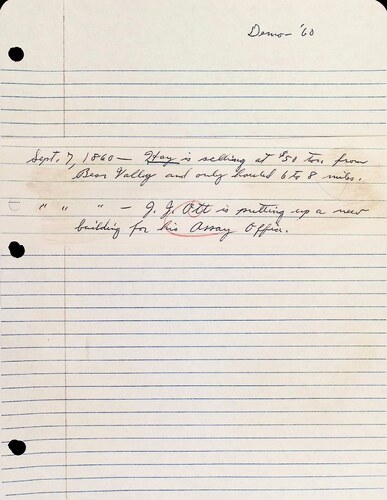 Demo - '60
Sept. 7, 1860 — Hay is selling at $50 ton from
Bear Valley and only hauled 6 to 8 miles.
" " " — J. J. Ott is putting up a new
building for his Assay Office.